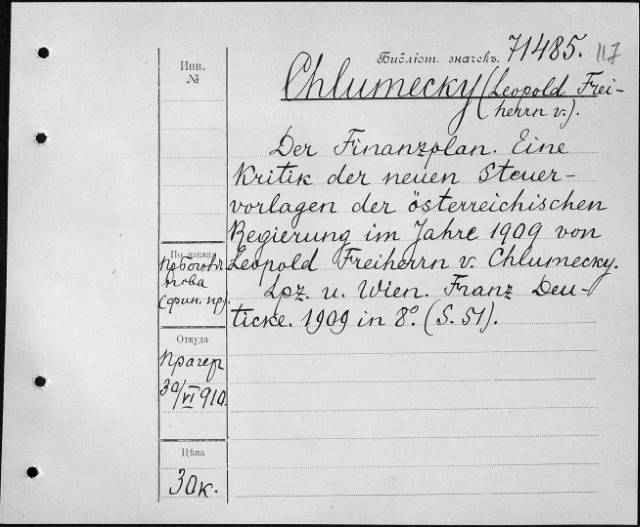 Библіот. значекъ. 71485. 117
Инв.
№
Chlumecky (Leopold Frei-
herrn v.).
Der Finanzplan. Eine
Kritik der neuen Steuer-
vorlagen der österreichischen
Regierung im Jahre 1909 von
Leopold Freiherrn v. Chlumecky.
Lpz. u. Wien. Franz Deu-
ticke. 1909 in 8°. (S. 51).
По заказу
(фин. пр).
Откуда
Прагер
30/VI 910.
Цѣна
30к.